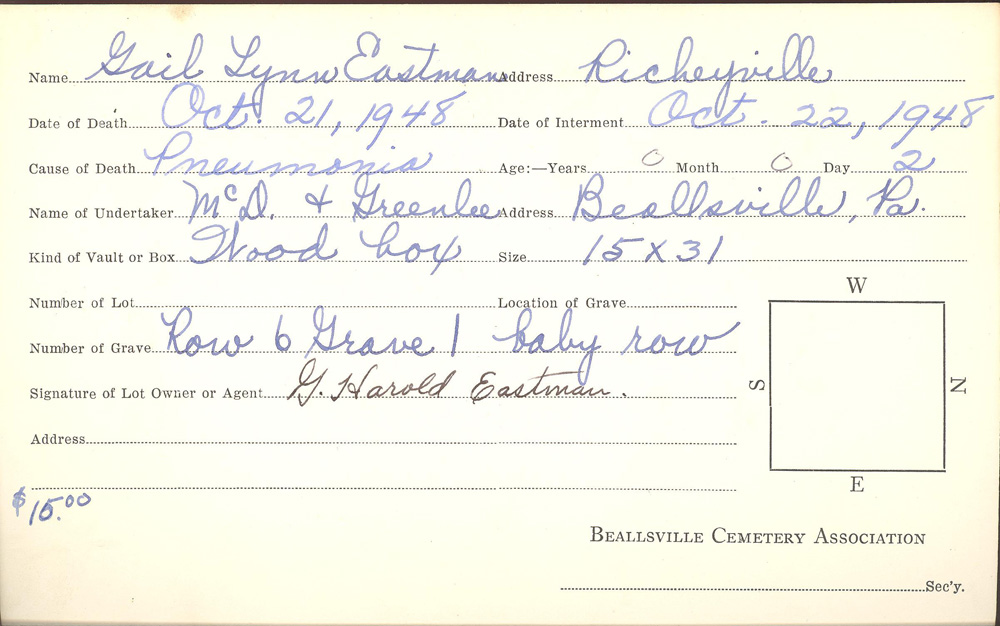 Name Gail Lynn Eastman Address Richeyville
Date of Death Oct. 21, 1948 Date of Interment Oct. 22, 1948
Cause of Death Pneumonia Age:—Years 0 Month 0 Day 2
Name of Undertaker McD. & Greenlee Address Beallsville, Pa.
Kind of Vault or Box Wood box Size 15 x 31
Number of Lot Location of Grave
W
Number of Grave Row 6 Grave 1 baby row
S N
Signature of Lot Owner or Agent G. Harold Eastman.
Address
E
$15.00
Beallsville Cemetery Association
Sec'y.